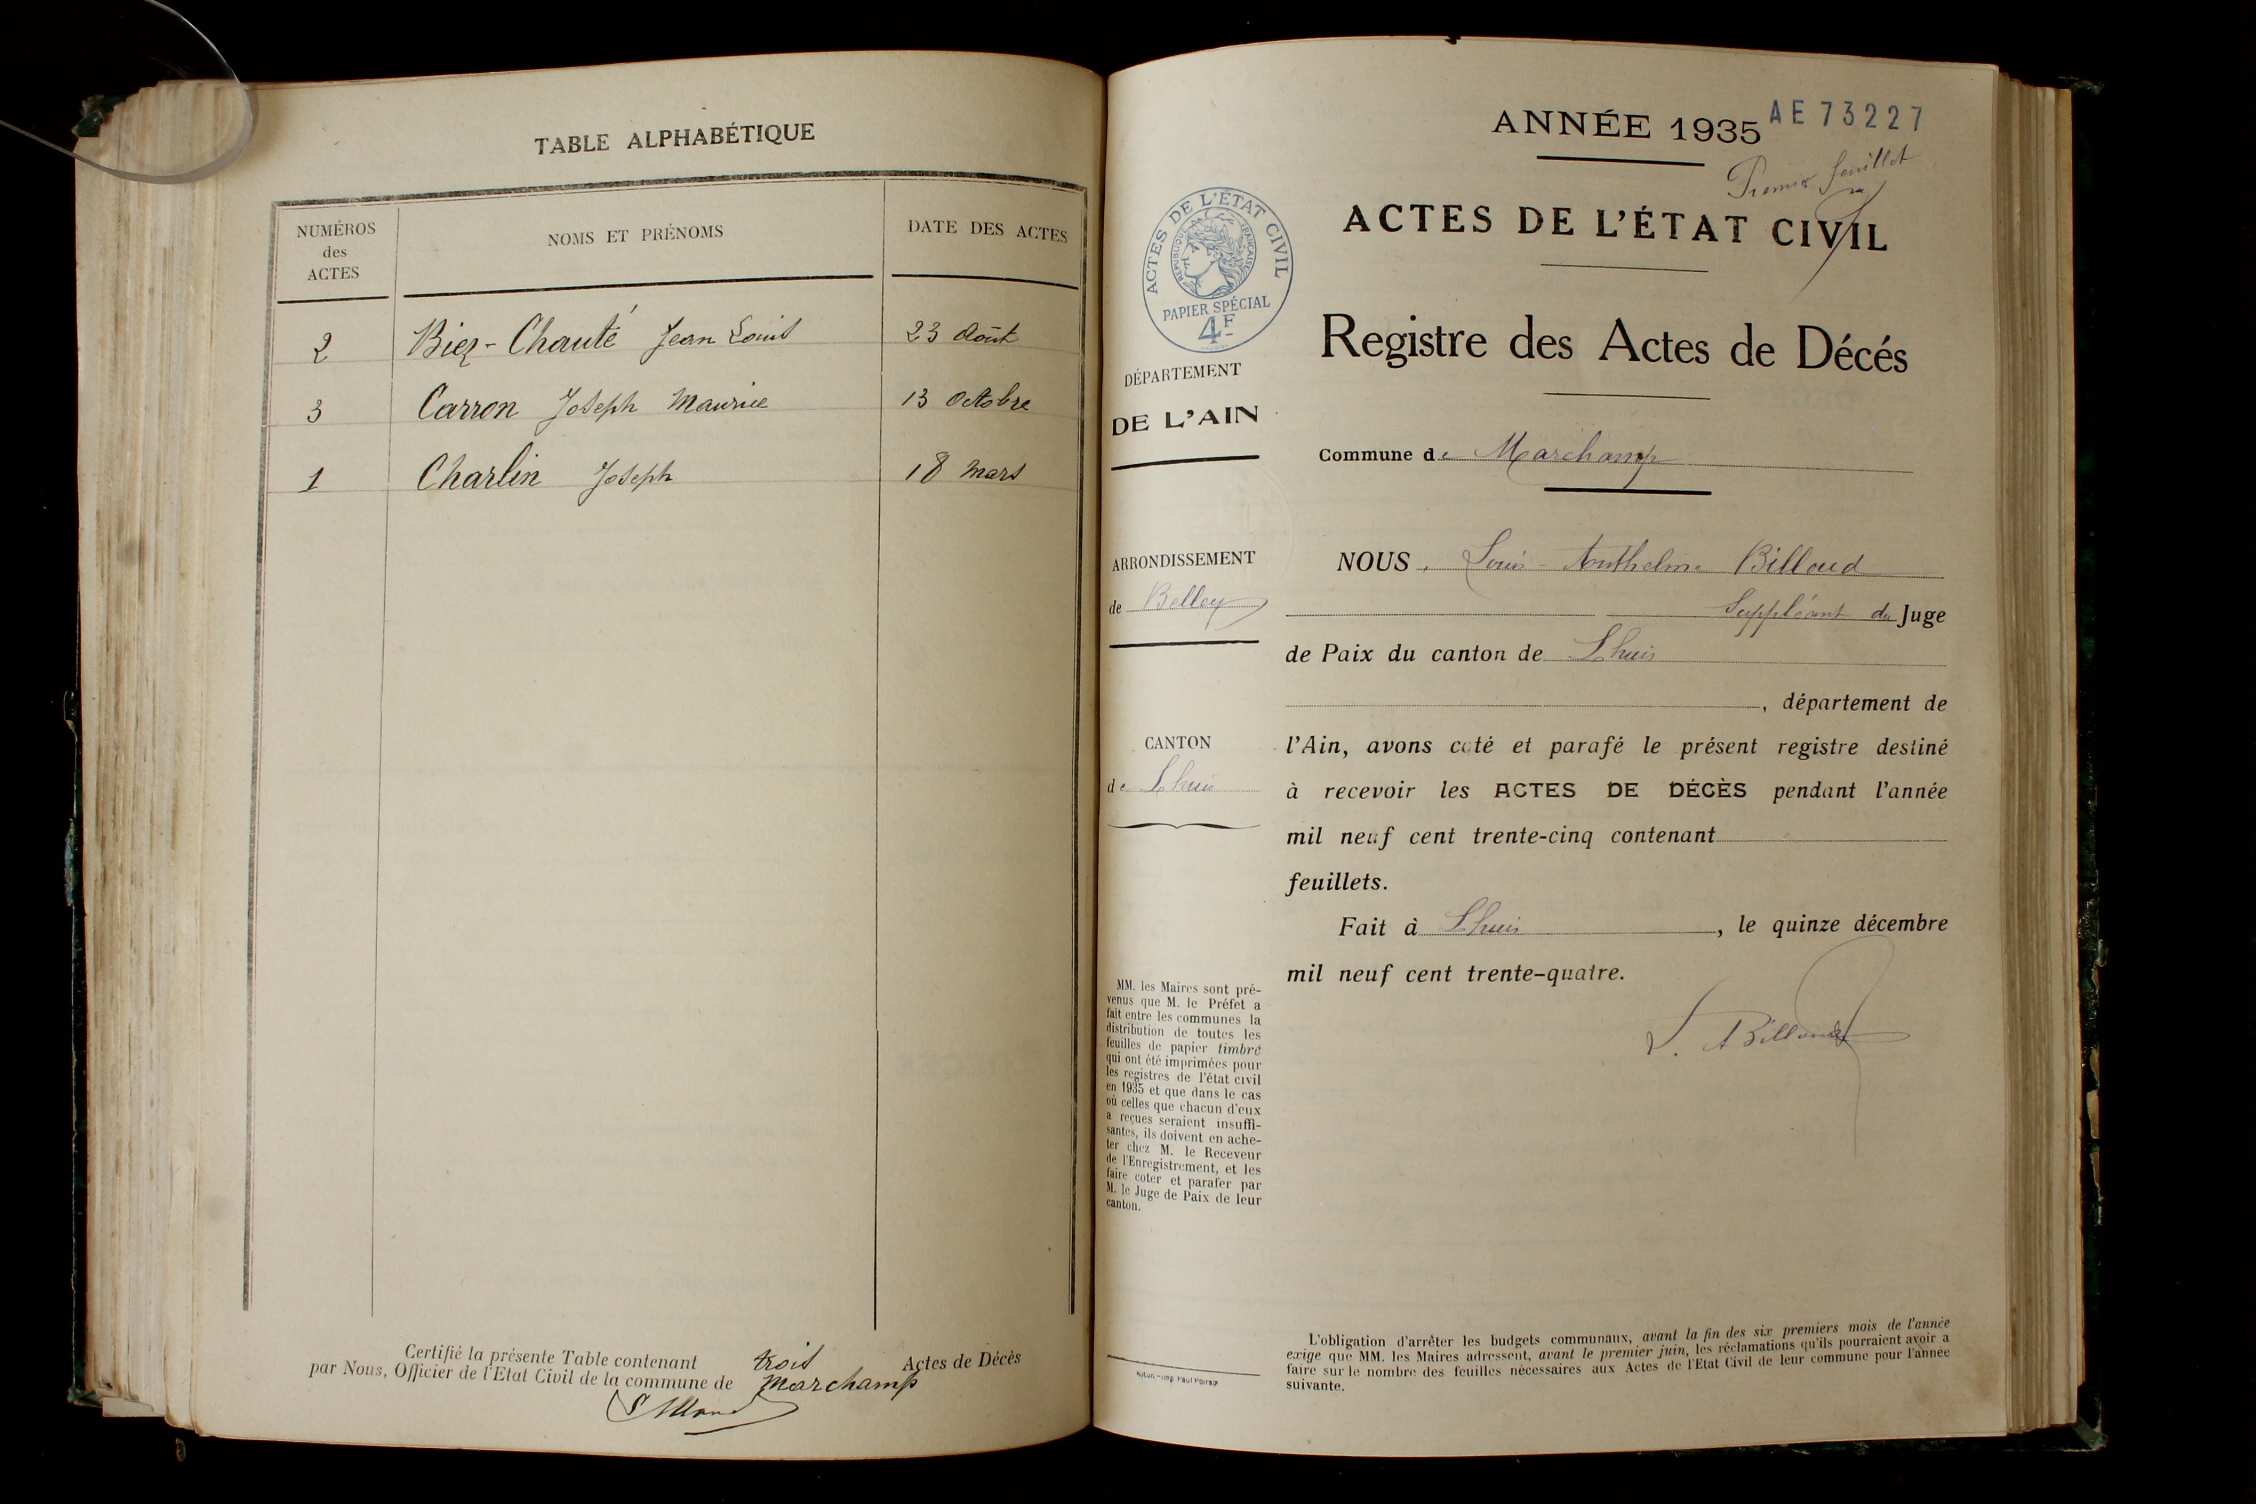 TABLE ALPHABÉTIQUE
NUMÉROS
des
ACTES
NOMS ET PRÉNOMS
DATE DES ACTES
2 Biez-Chauté Jean Louis 23 Août
3 Carron Joseph Maurice 13 Octobre
1 Charlin Joseph 18 Mars
Certifié la présente Table contenant trois Actes de Décès
par Nous, Officier de l'Etat Civil de la commune de Marchamp
ANNÉE 1935
AE 73227
Premier feuillet
ACTES DE L'ÉTAT CIVIL
Registre des Actes de Décés
Commune de Marchamp
ACTES DE L'ÉTAT CIVIL
RÉPUBLIQUE FRANÇAISE
PAPIER SPÉCIAL
4F
DÉPARTEMENT
DE L'AIN
ARRONDISSEMENT
de Belley
CANTON
de Lhuis
MM. les Maires sont pré-
venus que M. le Préfet a
fait entre les communes la
distribution de toutes les
feuilles de papier timbré
qui ont été imprimées pour
les registres de l'état civil
en 1935 et que dans le cas
où celles que chacun d'eux
a reçues seraient insuffi-
santes, ils doivent en ache-
ter chez M. le Receveur
de l'Enregistrement, et les
faire coter et parafer par
M. le Juge de Paix de leur
canton.
NOUS, Louis Anthelme Billoud
Suppléant du Juge
de Paix du canton de Lhuis
, département de
l'Ain, avons coté et parafé le présent registre destiné
à recevoir les ACTES DE DÉCÈS pendant l'année
mil neuf cent trente-cinq contenant
feuillets.
Fait à Lhuis, le quinze décembre
mil neuf cent trente-quatre.
L. A Billoud
L'obligation d'arrêter les budgets communaux, avant la fin des six premiers mois de l'année
exige que MM. les Maires adressent, avant le premier juin, les réclamations qu'ils pourraient avoir à
faire sur le nombre des feuilles nécessaires aux Actes de l'Etat Civil de leur commune pour l'année
suivante.